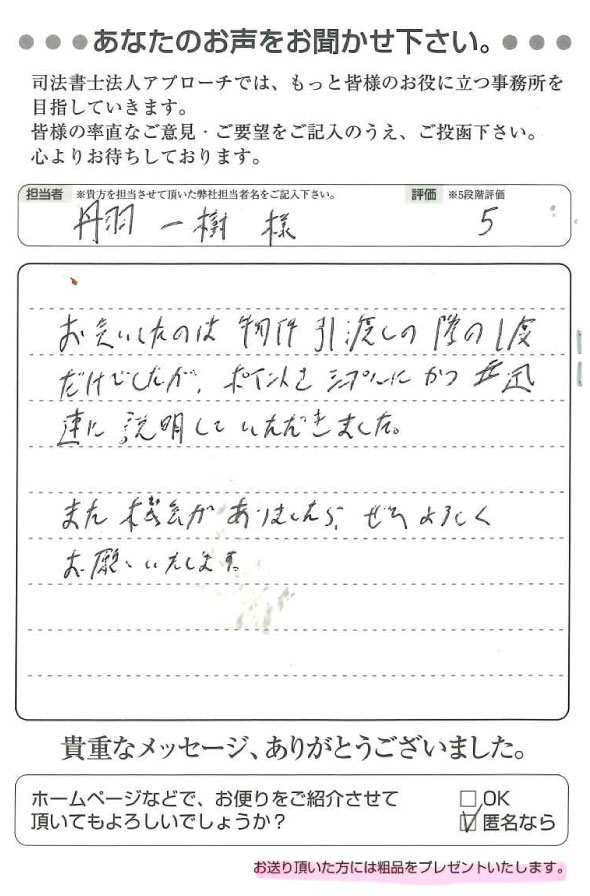 ●●●あなたのお声をお聞かせ下さい。●●●
司法書士法人アプローチでは、もっと皆様のお役に立つ事務所を
目指していきます。
皆様の率直なご意見・ご要望をご記入のうえ、ご投函下さい。
心よりお待ちしております。
担当者 ※貴方を担当させて頂いた弊社担当者名をご記入下さい。 評価 ※5段階評価
丹羽 一樹 様 5
お会いしたのは 物件 引渡しの 際の1度
だけでしたが、ポイントを シンプルに かつ 迅
速に 説明して いただきました。
また 機会が ありましたら、ぜひ よろしく
お願いいたします。
貴重なメッセージ、ありがとうございました。
ホームページなどで、お便りをご紹介させて □OK
頂いてもよろしいでしょうか? ☑匿名なら
お送り頂いた方には粗品をプレゼントいたします。